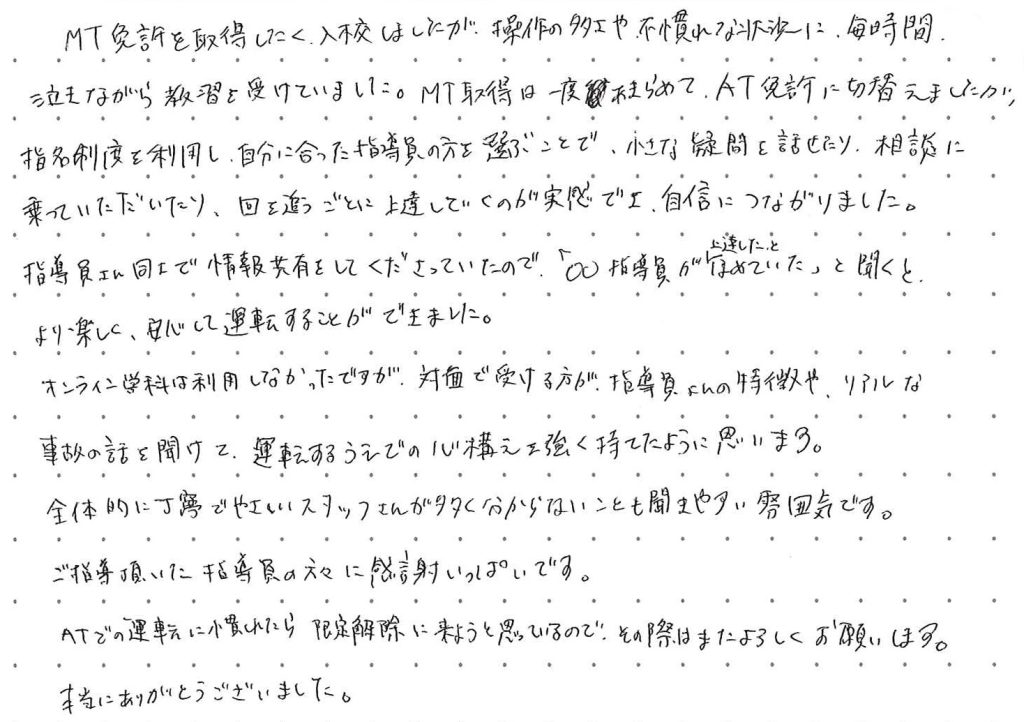 MT免許を取得したく、入校しましたが、操作の多さや不慣れな状況に、毎時間、
泣きながら教習を受けていました。MT取得は一度諦めて、AT免許に切替えましたが、
指名制度を利用し、自分に合った指導員の方を選ぶことで、小さな疑問を話せたり、相談に
乗っていただいたり、回を追うごとに上達していくのが実感でき、自信につながりました。
指導員さん同士で情報共有をしてくださっていたので、「〇〇指導員が上達したとほめていた」と聞くと、
より楽しく、安心して運転することができました。
オンライン学科は利用しなかったですが、対面で受ける方が、指導員さんの特徴や、リアルな
事故の話を聞けて、運転するうえでの心構えを強く持てたように思います。
全体的に丁寧でやさしいスタッフさんが多く分からないことも聞きやすい雰囲気です。
ご指導頂いた指導員の方々に感謝いっぱいです。
ATでの運転に慣れたら限定解除に来ようと思っているので、その際はまたよろしくお願いします。
本当にありがとうございました。